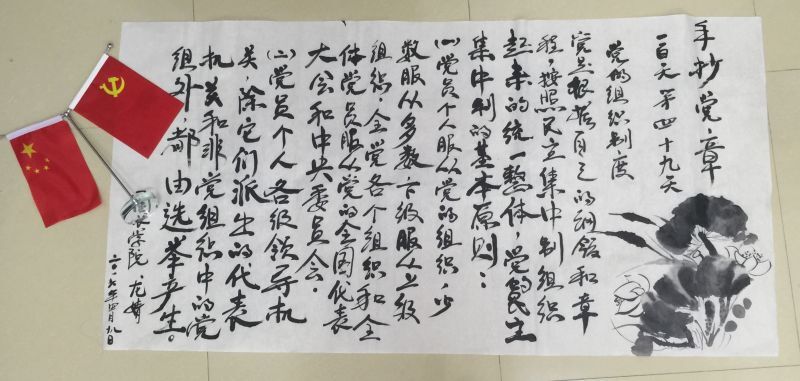 手抄党章
一百天第四十九天
党的组织制度
党是根据自己的纲领和章
程，按照民主集中制组织
起来的统一整体，党的民主
集中制的基本原则：
(一)党员个人服从党的组织，少
数服从多数，下级服从上级
组织，全党各个组织和全
体党员服从党的全国代表
大会和中央委员会。
(二)党员个人各级领导机
关，除它们派出的代表
机关和非党组织中的党
组外，都由选举产生。
学院
二〇一六年四月九日